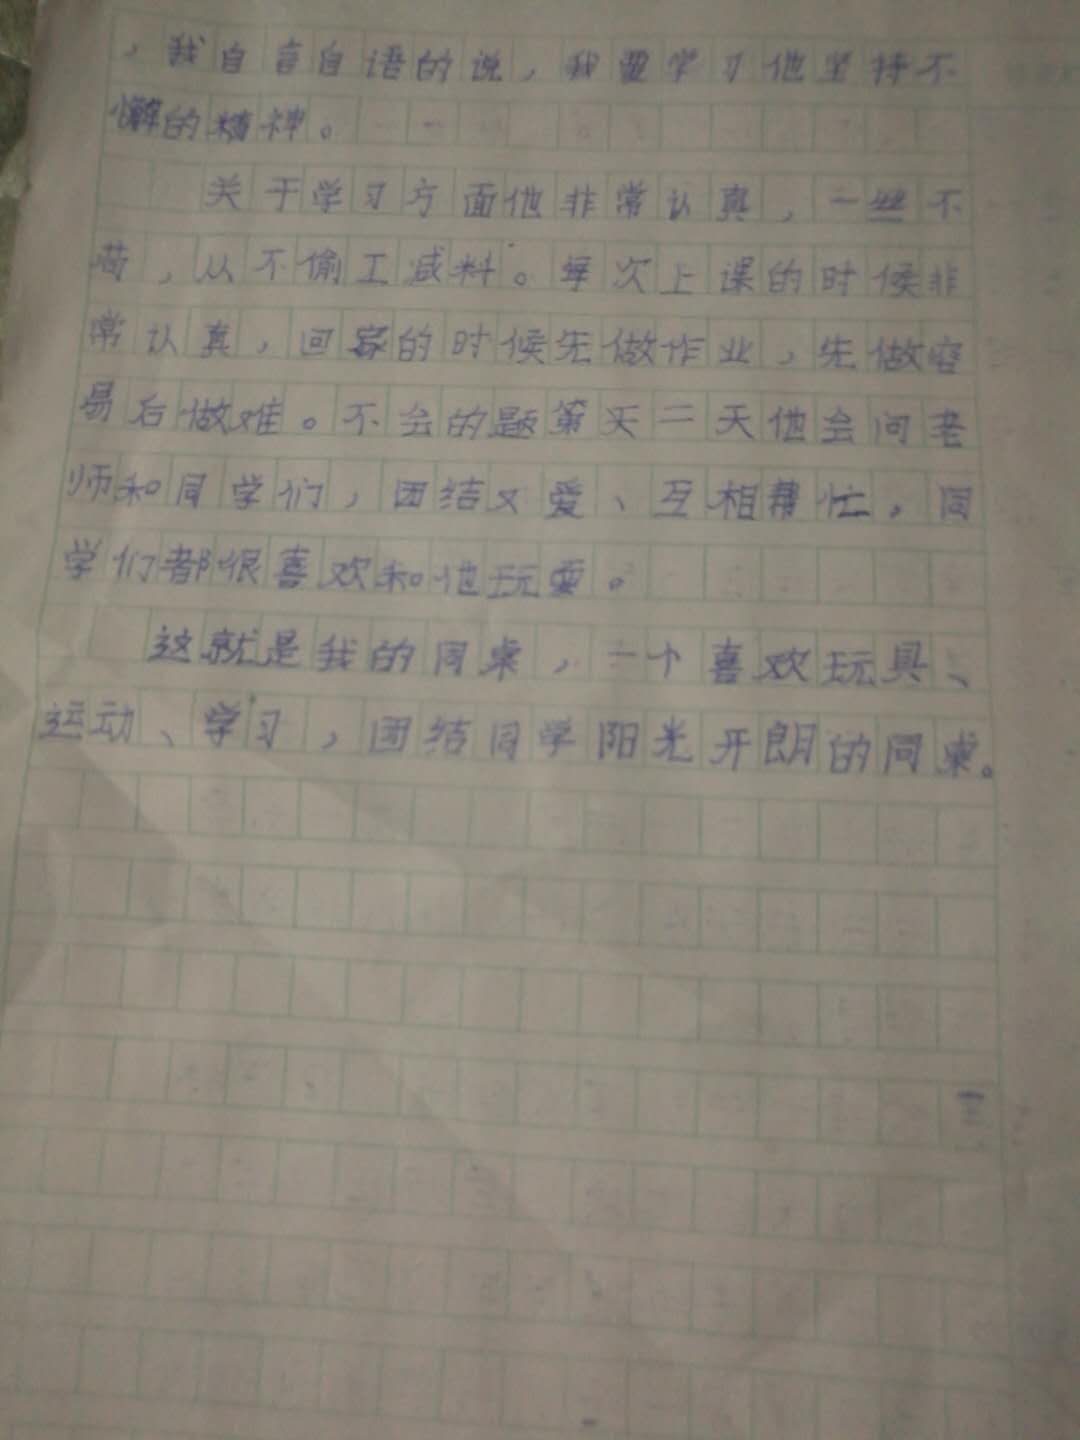 ，我自言自语的说，我要学习他坚持不
懈的精神。
关于学习方面他非常认真，一丝不
苟，从不偷工减料。每次上课的时候非
常认真，回家的时候先做作业，先做容
易后做难。不会的题第天二天他会问老
师和同学们，团结又爱、互相帮忙。同
学们都很喜欢和他玩耍。
这就是我的同桌，一个喜欢玩具、
运动、学习，团结同学阳光开朗的同桌。